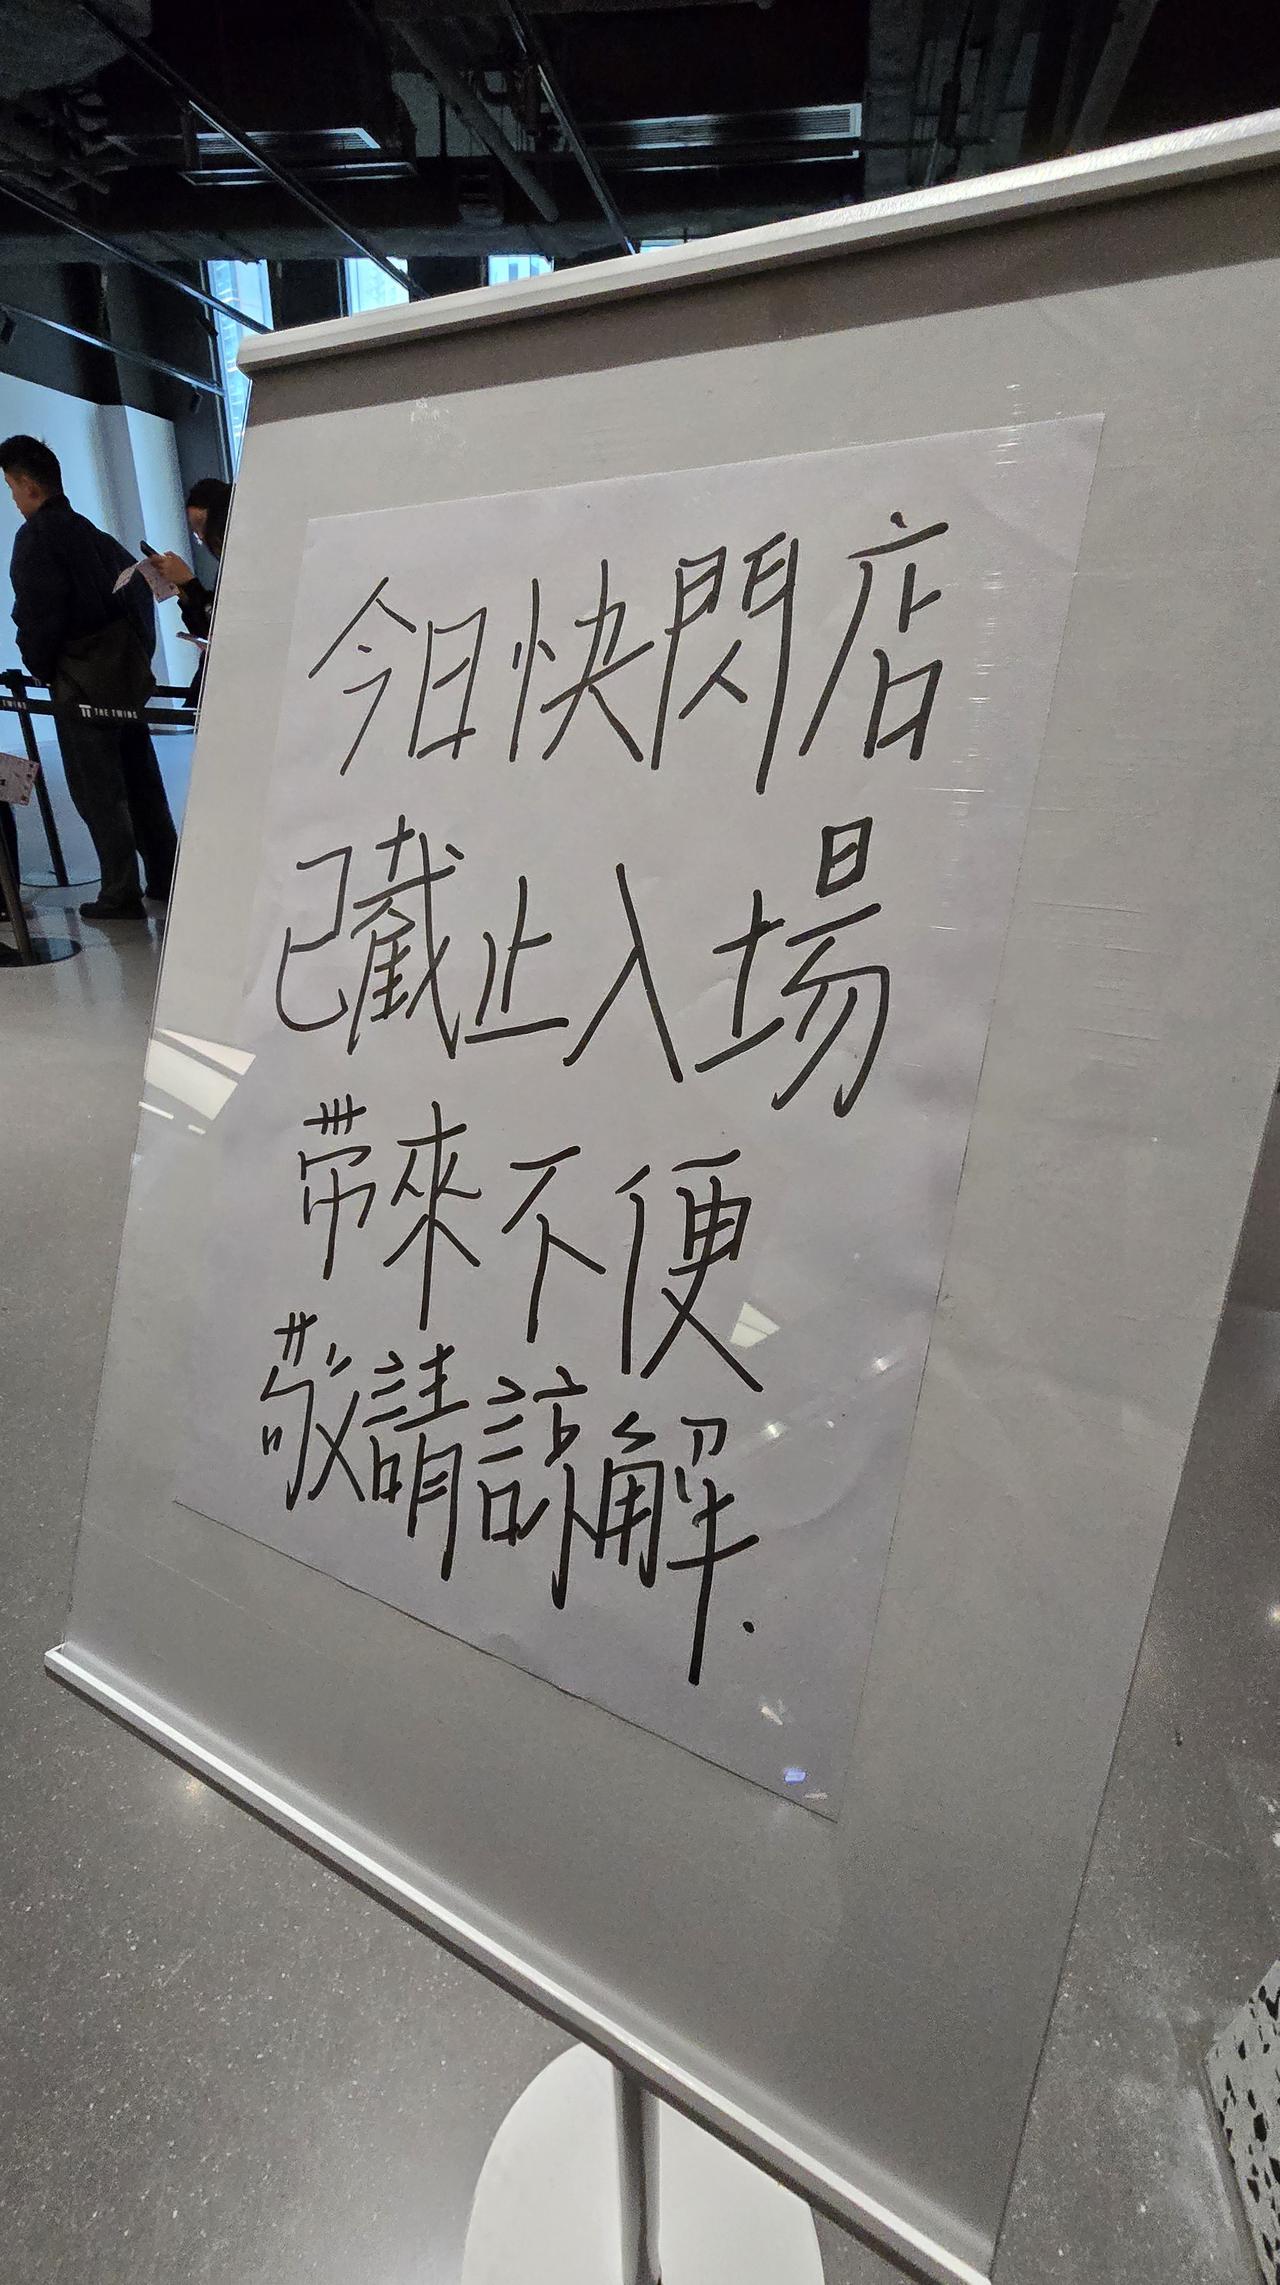 今日快閃店
已截止入場
带來不便
敬請諒解.
THE TWINS